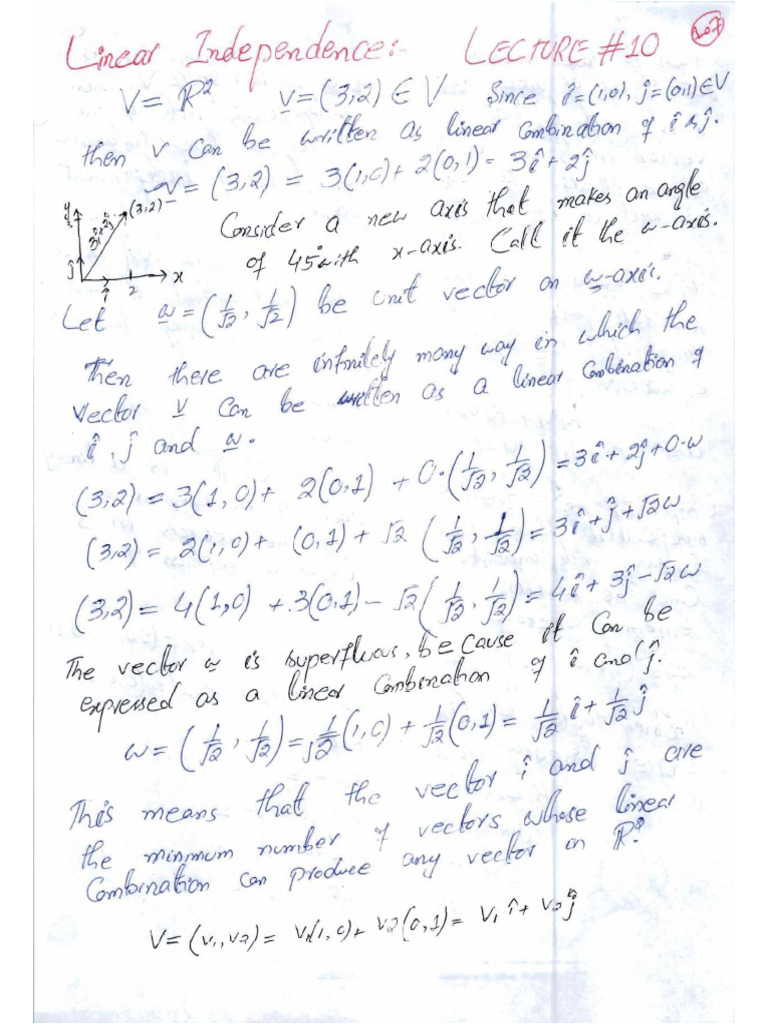 Linear Independence:- LECTURE #10 107
V = ℝ² v = (3,2) ∈ V Since î = (1,0), ĵ = (0,1) ∈ V
then v can be written as linear combination of î & ĵ.
v = (3,2) = 3(1,0) + 2(0,1) = 3î + 2ĵ
y
3î+2ĵ (3,2)
ĵ
î 2 x
Consider a new axis that makes an angle
of 45° with x-axis. Call it the w-axis.
Let w = (1/√2, 1/√2) be unit vector on w-axis.
Then there are infinitely many way in which the
vector v can be written as a linear combination of
î, ĵ and w.
(3,2) = 3(1,0) + 2(0,1) + 0·(1/√2, 1/√2) = 3î + 2ĵ + 0·w
(3,2) = 2(1,0) + (0,1) + √2 (1/√2, 1/√2) = 3î + ĵ + √2w
(3,2) = 4(1,0) + 3(0,1) - √2 (1/√2, 1/√2) = 4î + 3ĵ - √2w
The vector w is superfluas, because it can be
expressed as a linear combination of î and ĵ.
w = (1/√2, 1/√2) = 1/√2 (1,0) + 1/√2 (0,1) = 1/√2 î + 1/√2 ĵ
This means that the vector î and ĵ are
the minimum number of vectors whose linear
combination can produce any vector in ℝ².
V = (v₁, v₂) = v₁(1,0) + v₂(0,1) = v₁ î + v₂ ĵ